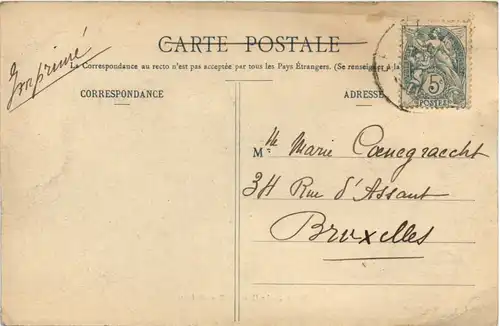 Imprimé
CARTE POSTALE
La Correspondance au recto n'est pas acceptée par tous les Pays Étrangers. (Se renseigner à la
CORRESPONDANCE
ADRESSE
5
POSTES
Mlle Marie Coenegracht
34 Rue d'Assaut
Bruxelles